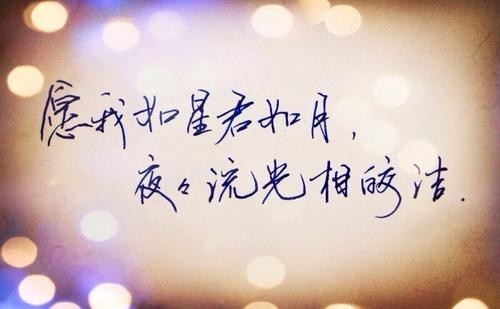 愿我如星君如月,
夜々流光相皎洁.